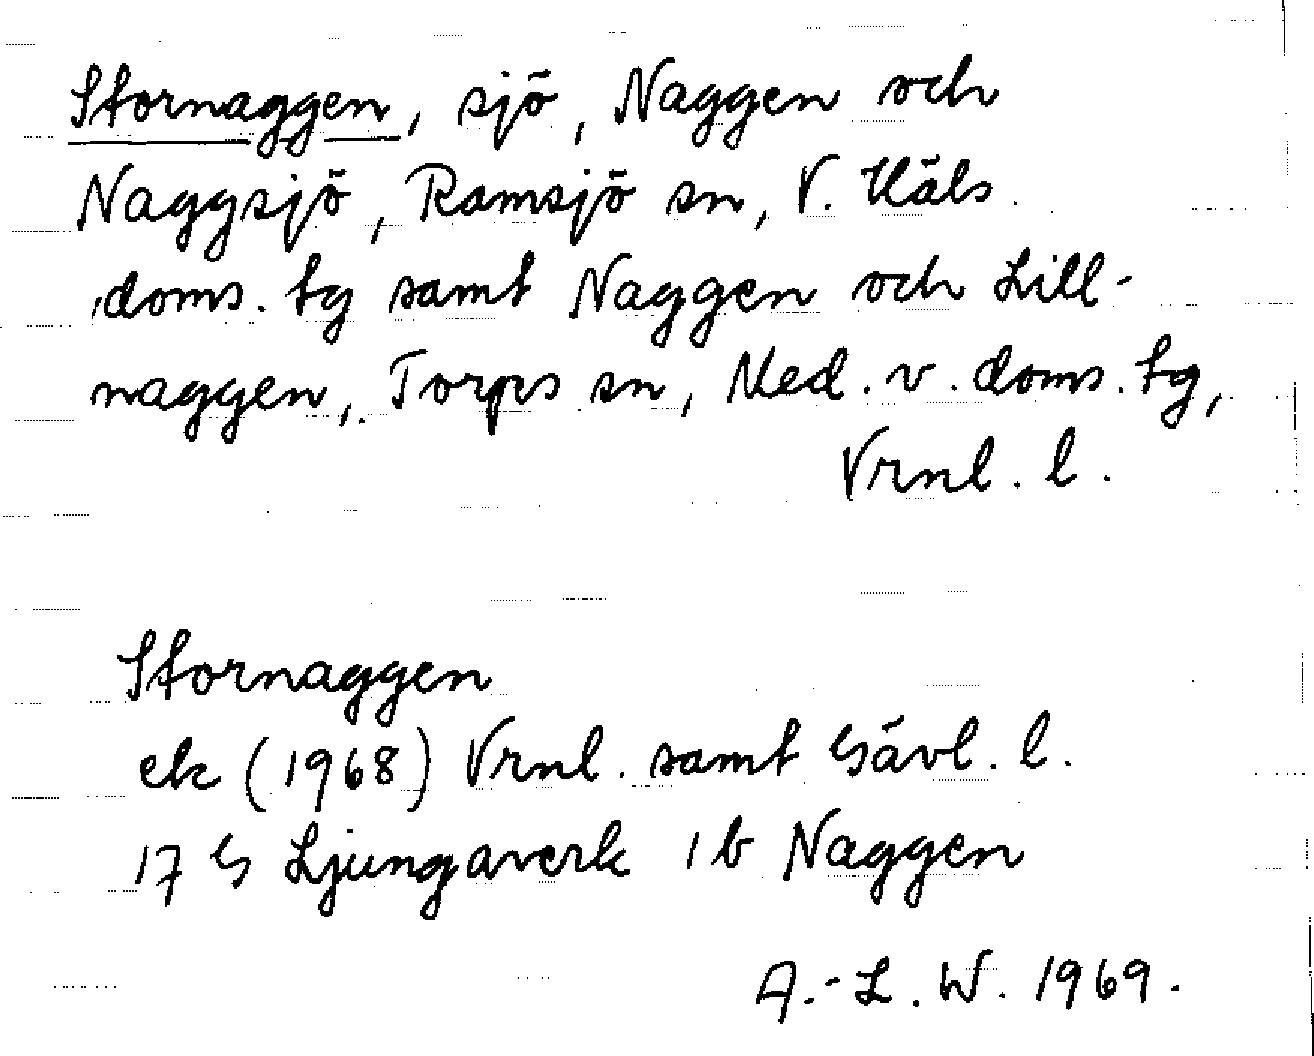 Stornaggen, sjö, Naggen och
Naggsjö, Ramsjö sn, V. Häls.
doms. tg samt Naggen och Lill-
naggen, Torps sn, Med. v. doms. tg,
Vrnl. l.
Stornaggen
ek (1968) Vrnl. samt Gävl. l.
17 G Ljungaverk 1 b Naggen
A.-L. W. 1969.